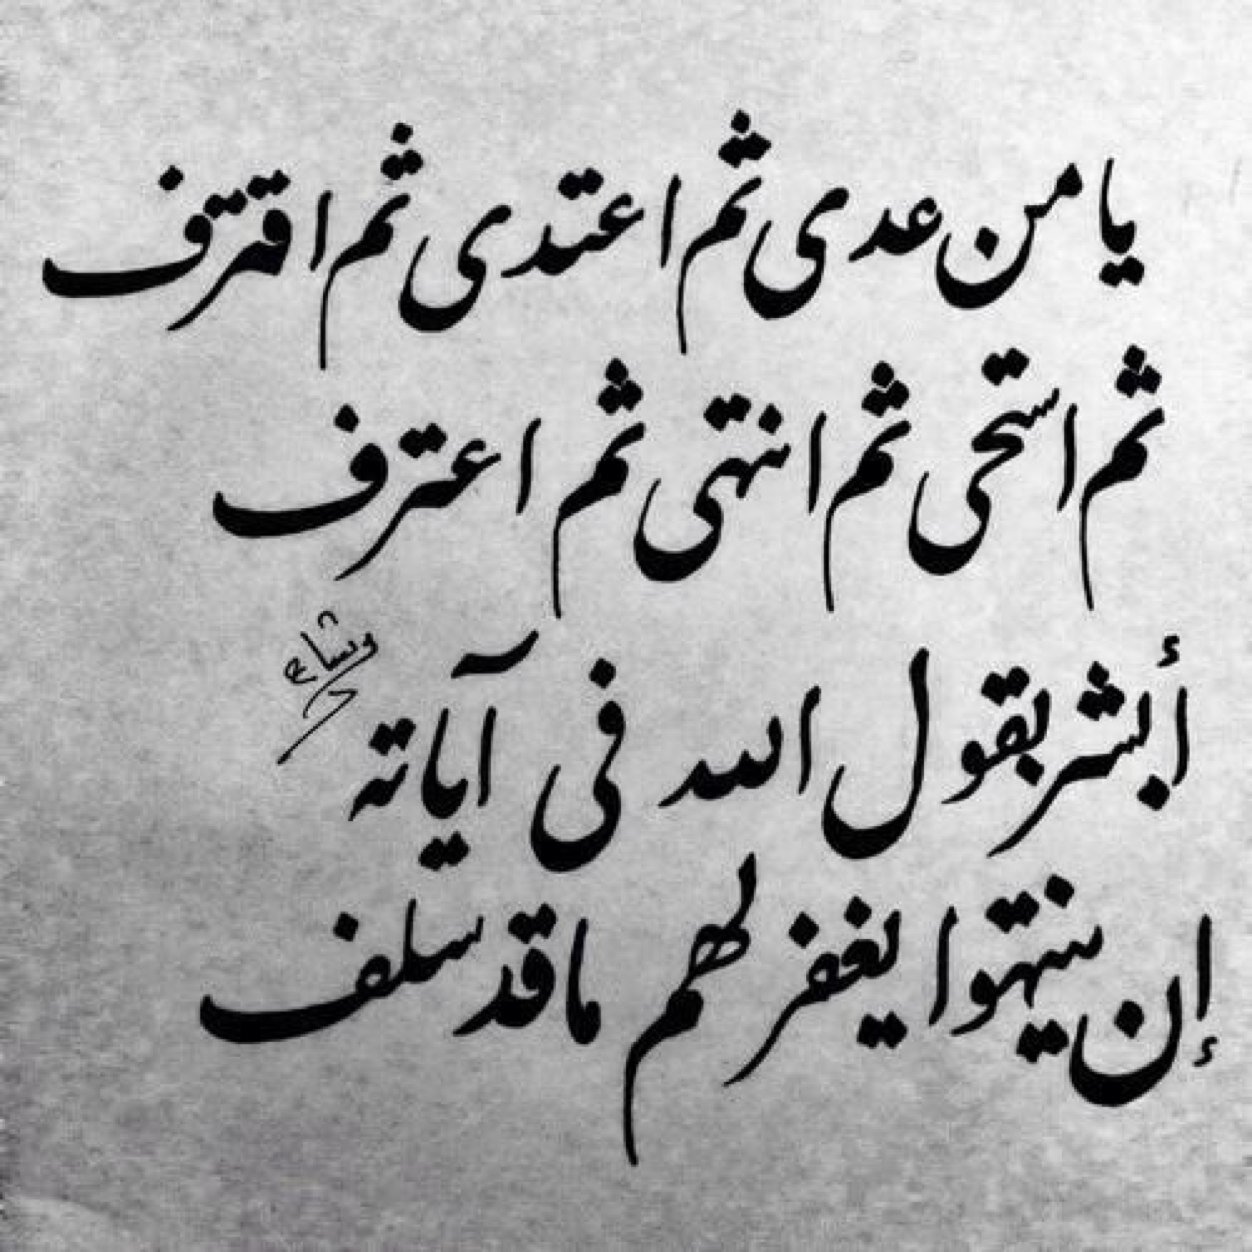 يا من عدى ثم اعتدى ثم اقترف
ثم استحى ثم انتهى ثم اعترف
أبشر بقول الله فى آياته
إن ينتهوا يغفر لهم ما قد سلف